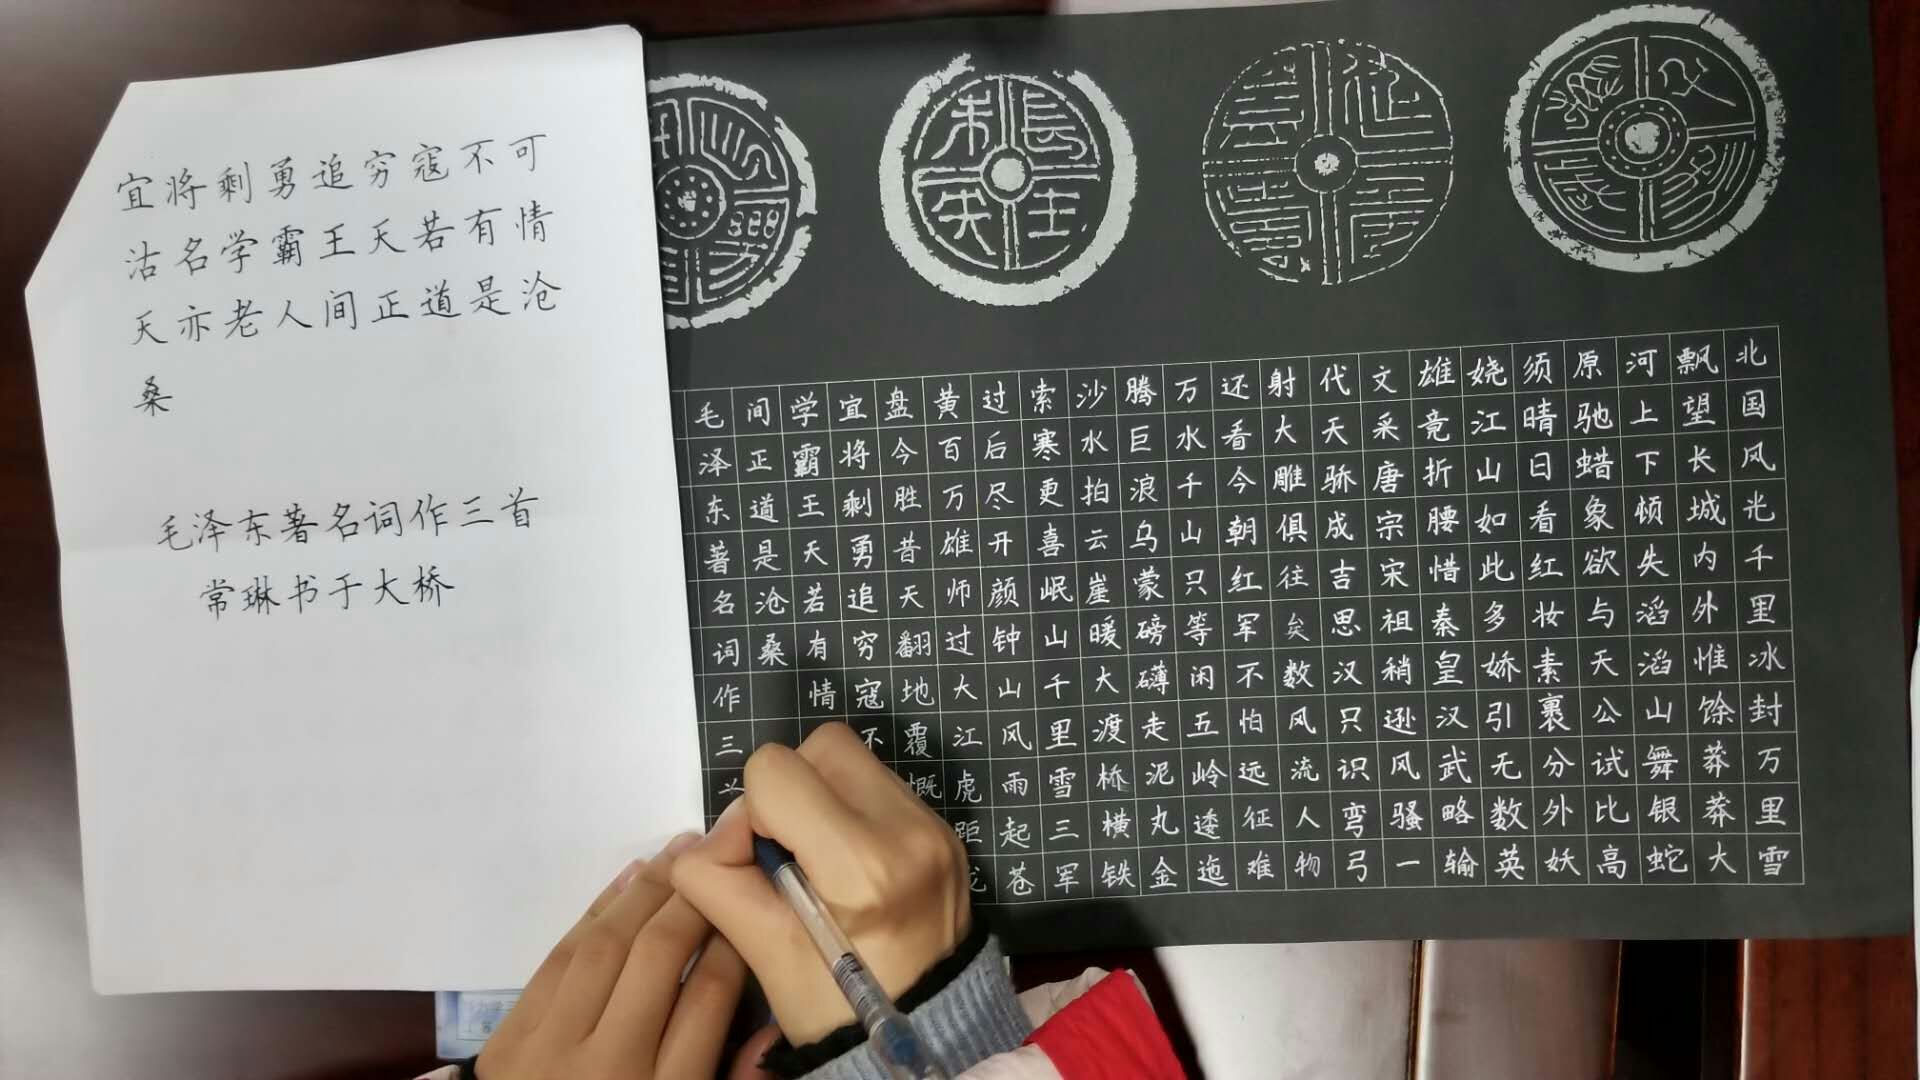 宜将剩勇追穷寇不可
沽名学霸王天若有情
天亦老人间正道是沧
桑
毛泽东著名词作三首
常琳书于大桥
长生未央
北国风光千里冰封万里雪
飘望长城内外惟馀莽莽大
河上下顿失滔滔山舞银蛇
原驰蜡象欲与天公试比高
须晴日看红妆素裹分外妖
娆江山如此多娇引无数英
雄竞折腰惜秦皇汉武略输
文采唐宗宋祖稍逊风骚一
代天骄成吉思汉只识弯弓
射大雕俱往矣数风流人物
还看今朝红军不怕远征难
万水千山只等闲五岭逶迤
腾巨浪乌蒙磅礴走泥丸金
沙水拍云崖暖大渡桥横铁
索寒更喜岷山千里雪三军
过后尽开颜钟山风雨起苍
黄百万雄师过大江虎距龙
盘今胜昔天翻地覆慨
宜将剩勇追穷寇不
学霸王天若有情
间正道是沧桑
毛泽东著名词作三